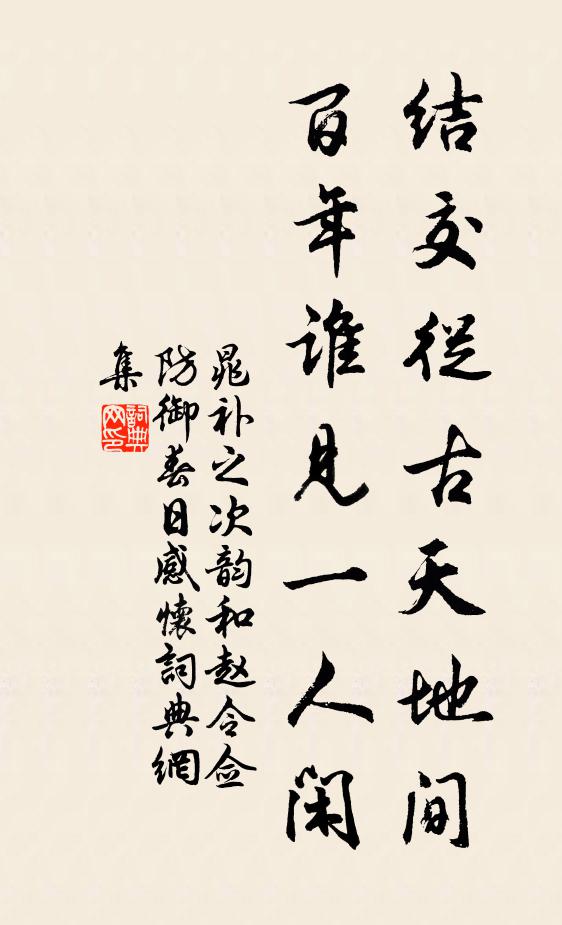 结交從古天地间
百年谁见一人闲
晁补之次韵和赵令佥
防御春日感懷詞典網
集
詞典
网印